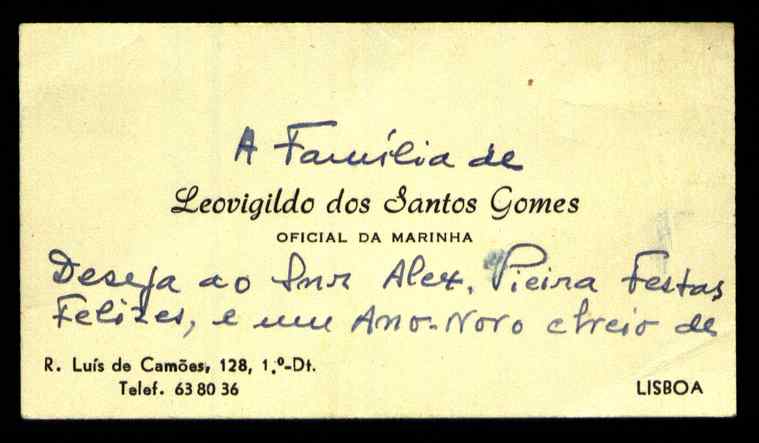 A Família de
Leovigildo dos Santos Gomes
OFICIAL DA MARINHA
Deseja ao Snr Alex. Pieira Festas
Felizes, e um Ano-Novo cheio de
R. Luís de Camões, 128, 1.º-Dt.
Telef. 63 80 36
LISBOA